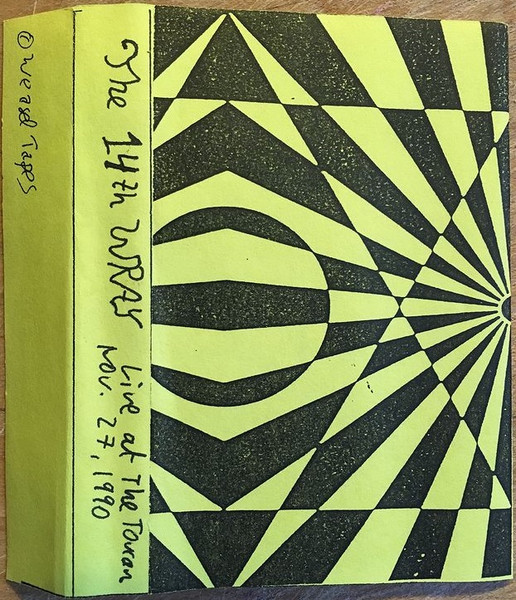 The 14th WRAY Live at The Toucan
Nov. 27, 1990
© Weasel Tapes